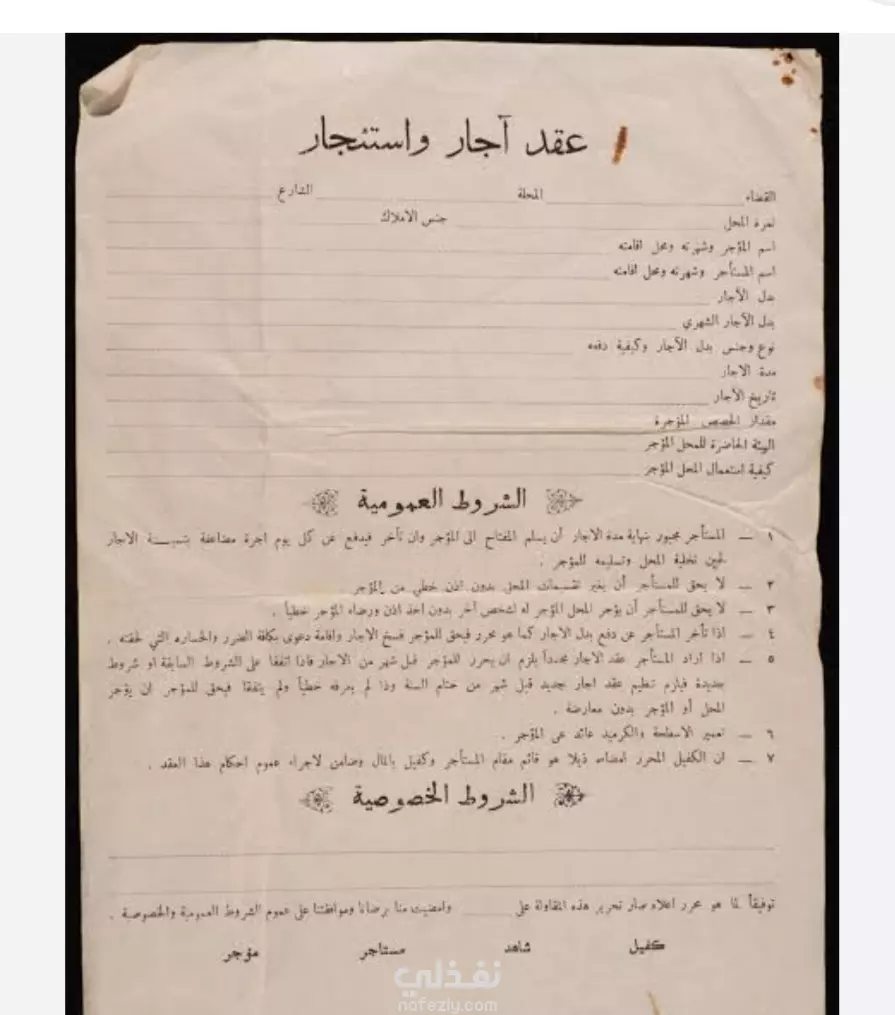 عقد آجار واستئجار
القضاء المحلة الشارع
نمرة المحل جنس الاملاك
اسم المؤجر وشهرته ومحل اقامته
اسم المستأجر وشهرته ومحل اقامته
بدل الآجار
بدل الآجار الشهري
نوع وجنس بدل الآجار وكيفية دفعه
مدة الاجار
تاريخ الآجار
مقدار الحصص المؤجرة
الهيئة الحاضرة للمحل المؤجر
كيفية استعمال المحل المؤجر
الشروط العمومية
١ — المستأجر مجبور بنهاية مدة الاجار أن يسلم المفتاح الى المؤجر وان تأخر فيدفع عن كل يوم اجرة مضاعفة بنسبة الاجار
لحين تخلية المحل وتسليمه للمؤجر .
٢ — لا يحق للمستأجر أن يغير تقسيمات المحل بدون اذن خطي من المؤجر
٣ — لا يحق للمستأجر أن يؤجر المحل المؤجر له لشخص آخر بدون اخذ اذن ورضاء المؤجر خطياً .
٤ — اذا تأخر المستأجر عن دفع بدل الاجار كما هو محرر فيحق للمؤجر فسخ الاجار واقامة دعوى بكافة الضرر والخساره التي لحقته .
٥ — اذا اراد المستأجر عقد الاجار مجدداً يلزم ان يحرر للمؤجر قبل شهر من الاجار فاذا اتفقا على الشروط السابقة او شروط
جديدة فيلزم تنظيم عقد اجار جديد قبل شهر من ختام السنة وذا لم يعرفه خطياً ولم يتفقا فيحق للمؤجر ان يؤجر
المحل أو المؤجر بدون معارضة .
٦ — تعمير الاسطحة والكرميد عائد عى المؤجر .
٧ — ان الكفيل المحرر امضاه ذيلا هو قائم مقام المستأجر وكفيل بالمال وضامن لاجراء عموم احكام هذا العقد .
الشروط الخصوصية
توفيقاً لما هو محرر اعلاه صار تحرير هذه المقاولة على وامضيت منا برضانا وموافقتنا على عموم الشروط العمومية والخصوصية .
كفيل شاهد مستاجر مؤجر
نفذلي
nafezly.com